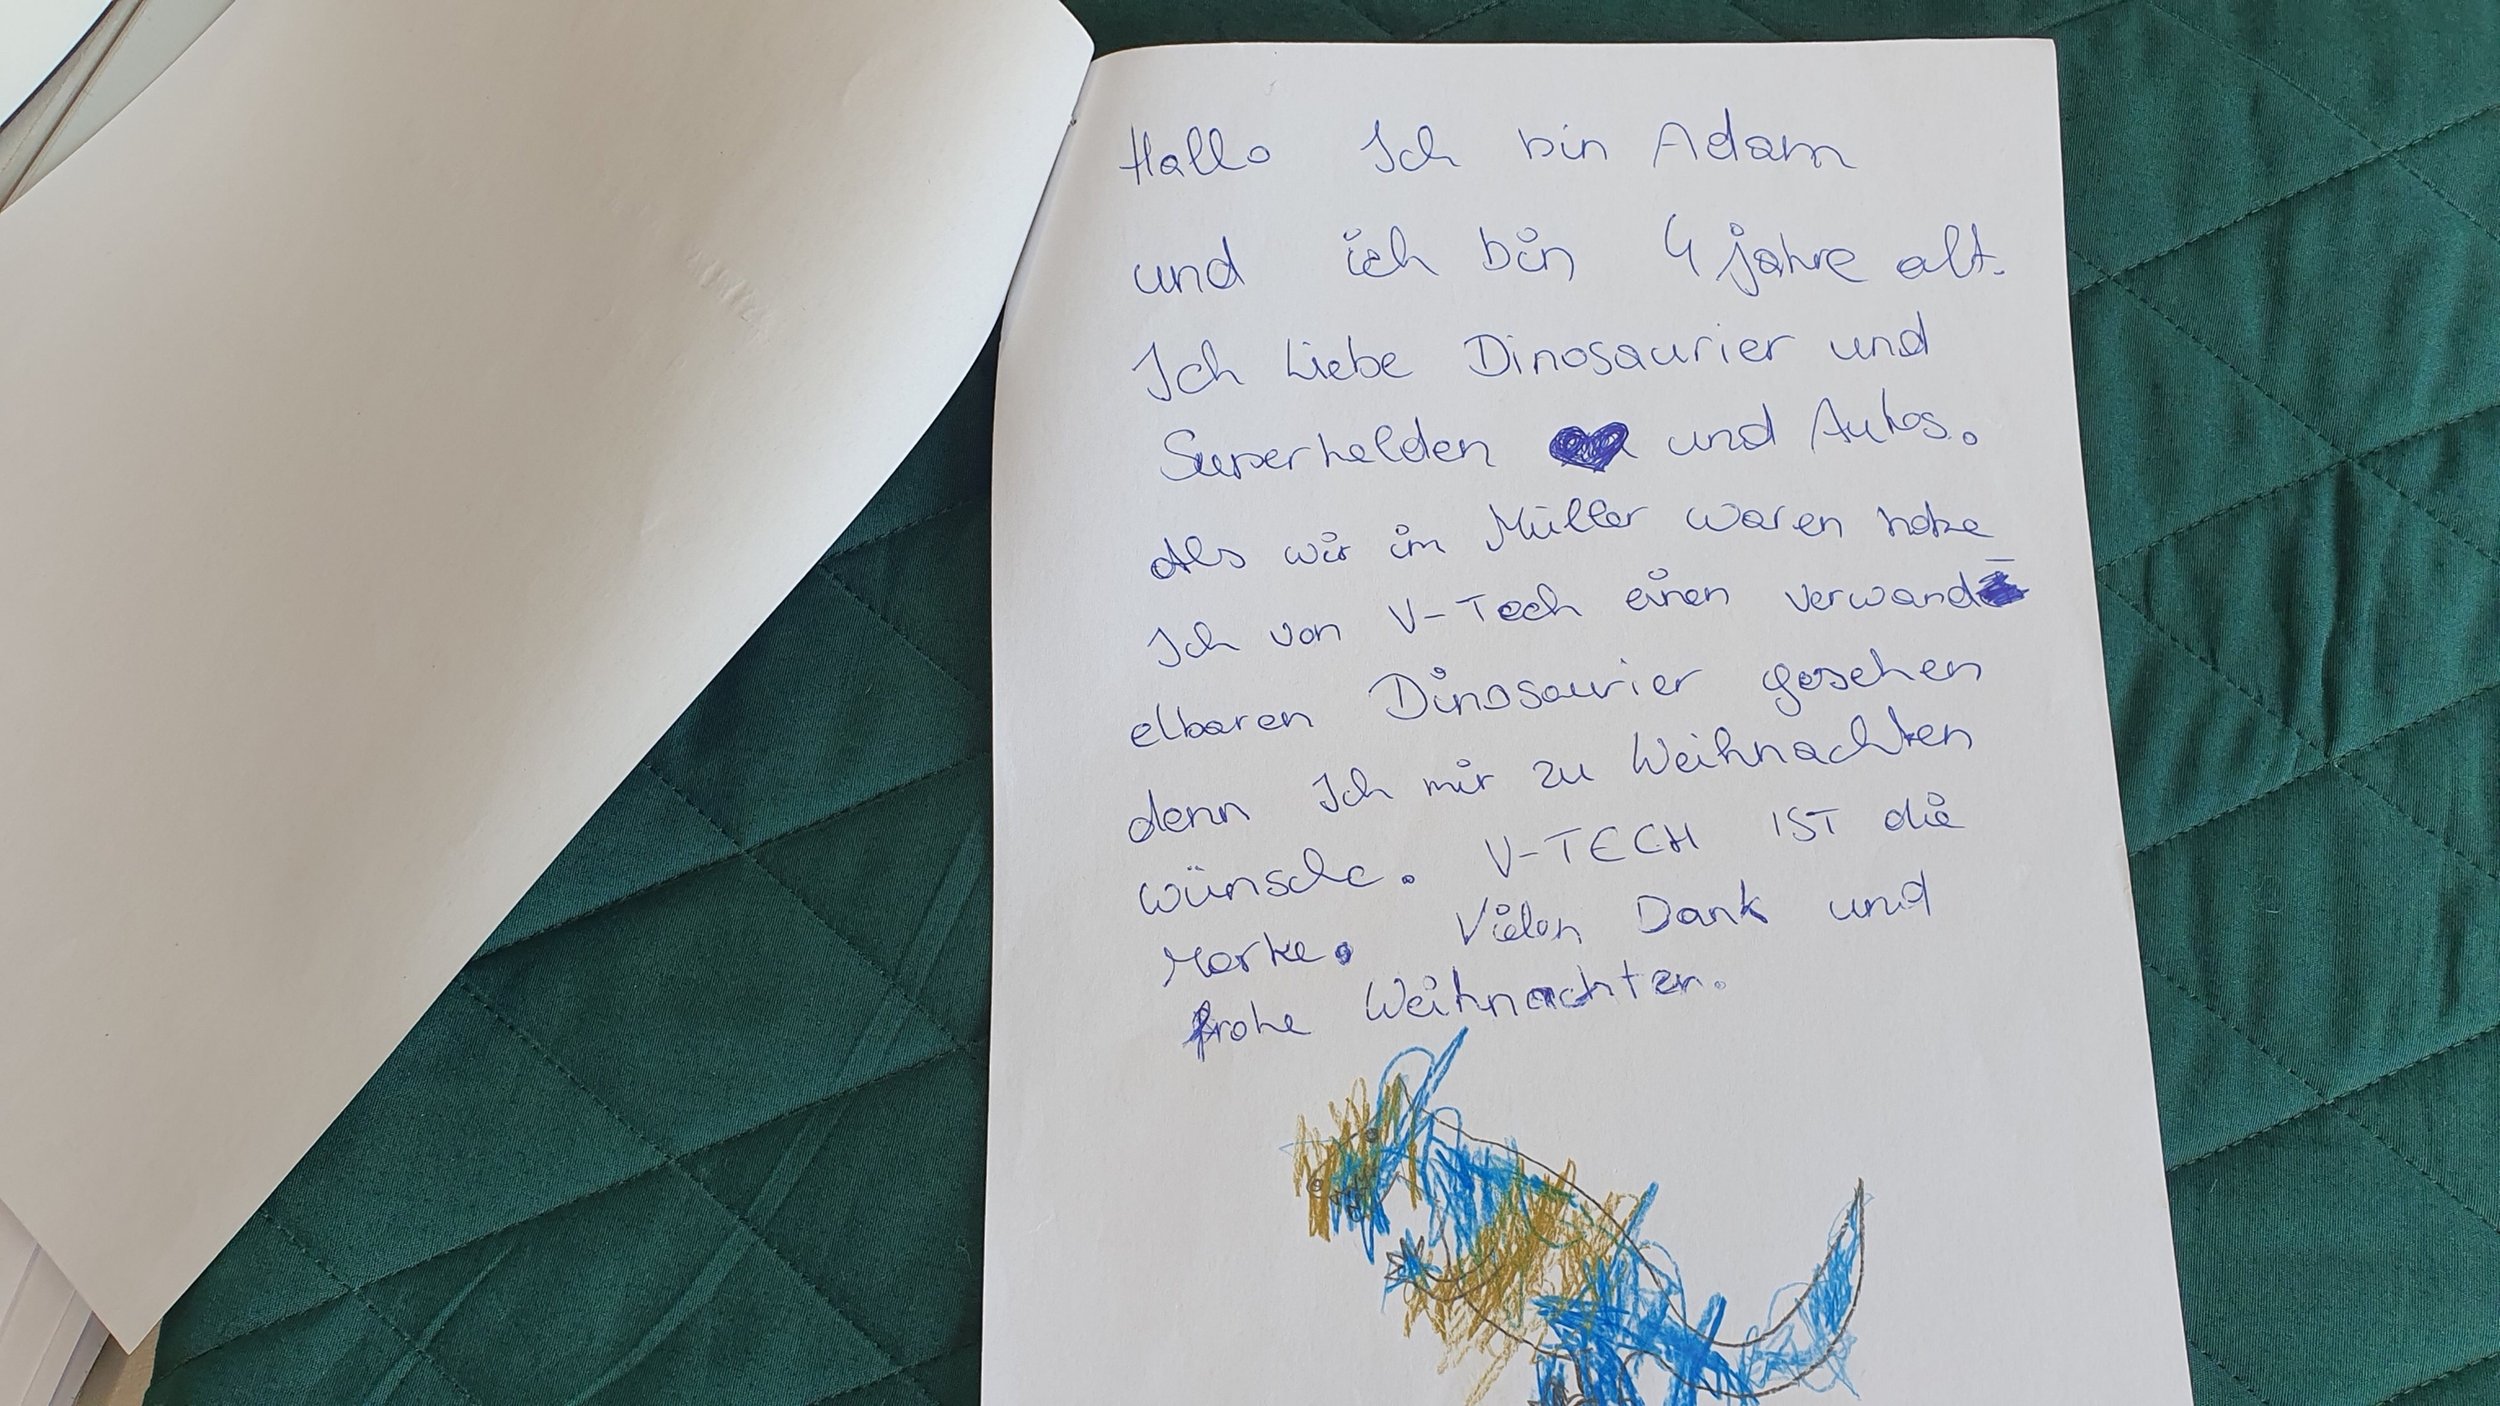 Hallo Ich bin Adam
und ich bin 4 jahre alt.
Ich Liebe Dinosaurier und
Superhelden und Autos.
Als wir im Müller waren habe
Ich von V-Tech einen verwand
elbaren Dinosaurier gesehen
denn Ich mir zu Weihnachten
wünsche. V-TECH IST die
Marke. Vielen Dank und
frohe Weihnachten.